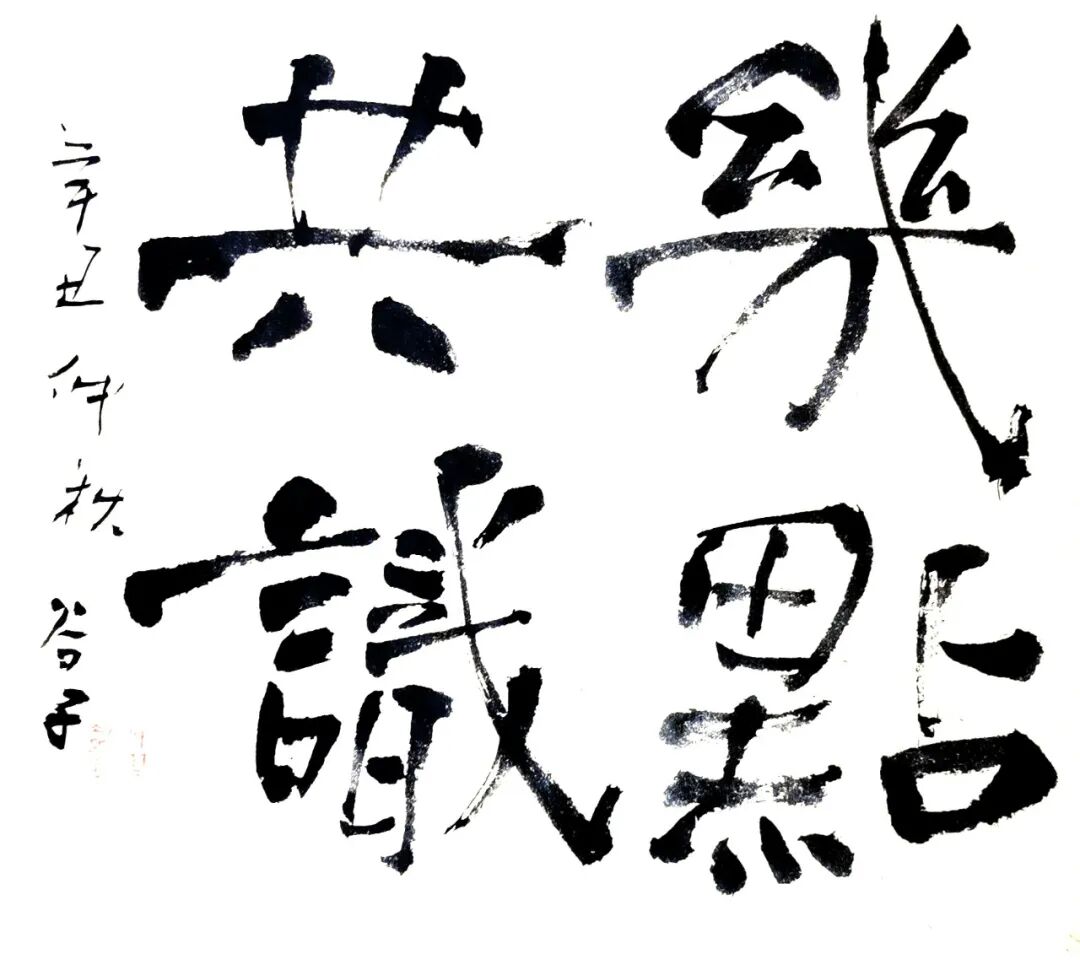 幾點
共識
辛丑仲秋 谷子